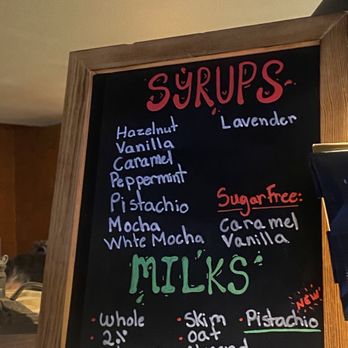 SYRUPS
Hazelnut
Vanilla
Caramel
Peppermint
Pistachio
Mocha
White Mocha
Lavender
Sugar Free:
Caramel
Vanilla
MILKS
• Whole
• 2%
• Skim
• Oat
• Pistachio
NEW